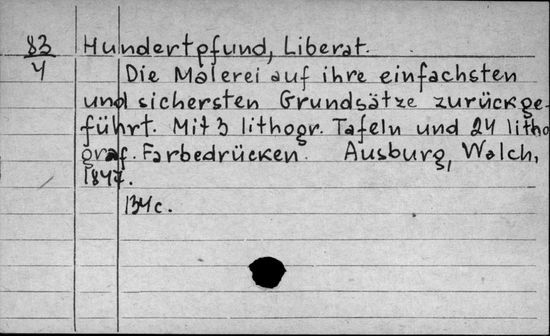 83 Hundertpfund, Liberat.
4 Die Malerei auf ihre einfachsten
und sichersten Grundsätze zurückge-
führt. Mit 3 lithogr. Tafeln und 24 litho
graf. Farbedrücken. Ausburg, Walch,
1847.
134c.